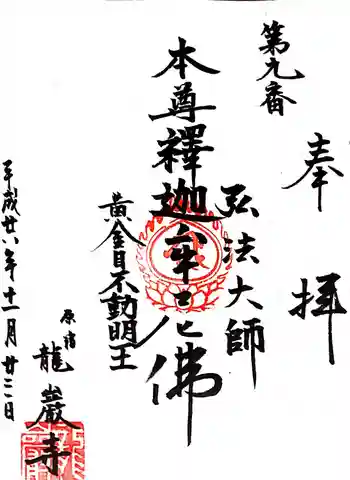 奉拝
第九番
弘法大師
本尊釋迦牟尼佛
黄金目不動明王
平成廿六年十一月廿三日
原宿
龍巖寺